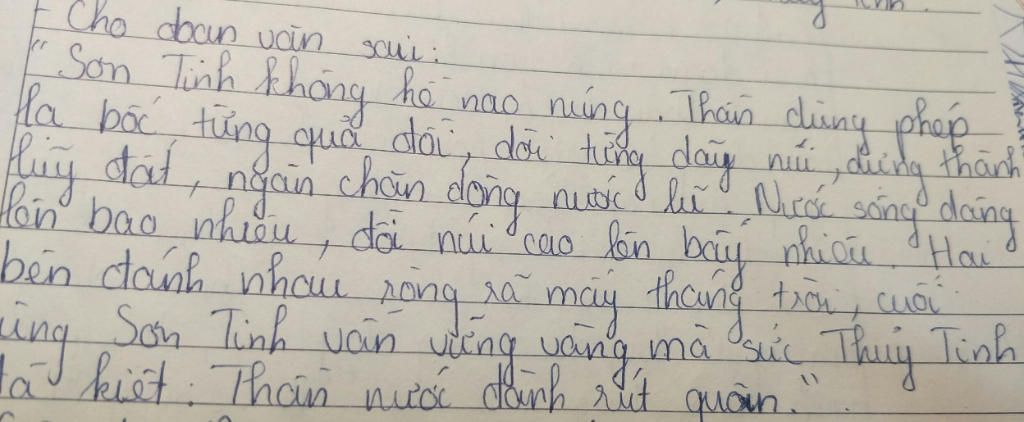 - Cho đoạn văn sau:
"Sơn Tinh không hề nao núng. Thần dùng phép
lạ bốc từng quả đồi, dời từng dãy núi, dựng thành
lũy đất, ngăn chặn dòng nước lũ. Nước sông dâng
lên bao nhiêu, đồi núi cao lên bấy nhiêu. Hai
bên đánh nhau ròng rã mấy tháng trời, cuối
cùng Sơn Tinh vẫn vững vàng mà sức Thủy Tinh
đã kiệt. Thần nước đành rút quân."